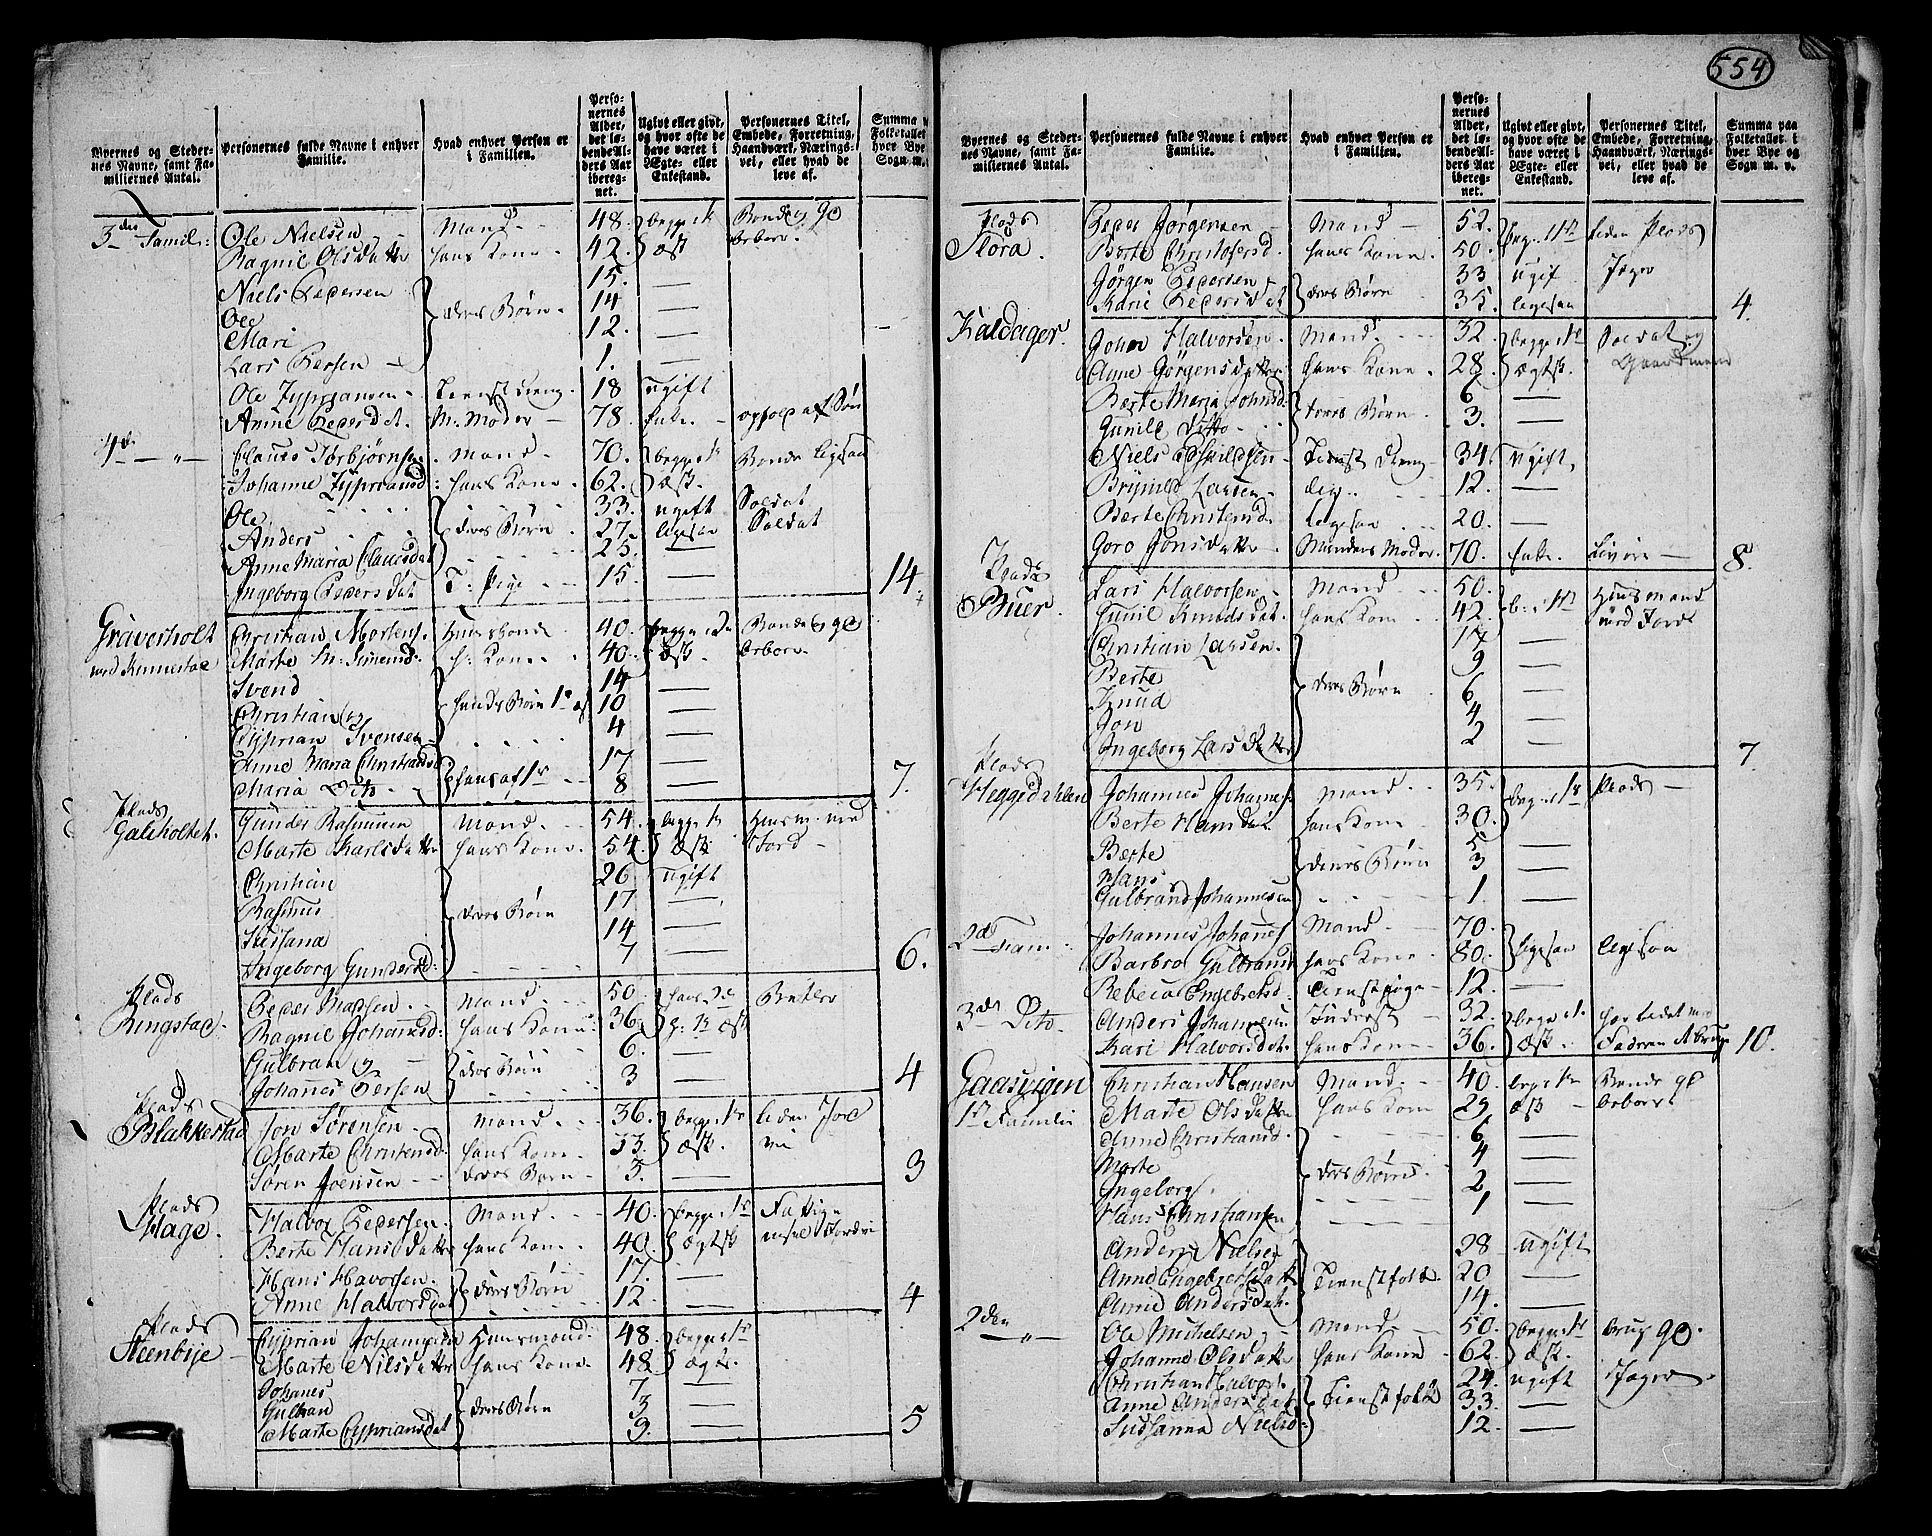 554
Byernes og Stedernes Navne, samt Familiernes Antal.
Personernes fulde Navne i enhver Familie.
Hvad enhver Person er i Familien.
Personernes Alder, det løbende Alders Aar iberegnet.
Ugivt eller givt, og hvor ofte de have været i Ægte- eller Enkestand.
Personernes Titel, Embede, Forretning, Haandværk, Næringsvei, eller hvad de leve af.
Summa Folketallet hver Bye Sogn m.
3die Famil: Ole Nielsen Mand 48. begge 1ste Bonde og
Ragnil Olsdatter hans Kone 42.
Niels Pedersen 15. —
Ole deres Børn 14 —
Mari 12. —
Lars Persen 1. —
Ole Zyprjansen Tienst dreng 18 ugift
Anne Pedersdat. M. Moder 78. Enke
4de — " — Claues Torbjørns. Mand 70. begge 1ste Bonde ligesaa
Johanne Zypriansd: hans Kone 62.
Ole 33. ugift Soldat
Anders deres Børn 27. ligesaa Soldat
Anne Maria Clausdat 25. —
Ingeborg Pedersdat T: Pige 15. — 14.
Graverholt Christian Mortens. Huusbonde 40. begge 2de Bonde
med Rennestad Marte h: Kone 40.
Svend 14 —
Christian og 10 —
Cyprian Svensen 4 —
Anne Maria Christiansd 17 —
Maria Dito 8 — 7.
Plads
Galeholtet. Gunder Rasmusen Mand 54. begge 1ste
Marte Karlsdatter hans Kone 54. Jord
Christian 26 ugift
Rasmus deres Børn 17 —
Susana 14 —
Ingeborg Gundersd: 7 — 6.
Plads
Ringstad. Peder Madsen Mand 50.
Ragnil Johansd: hans Kone 36.
Gulbran og deres Børn 6. —
Johanes Persen 3 — 4
Plads
Blakkestad Jon Sørensen Mand 36. begge 1ste uden Jord
Marte Christensd. hans Kone 33.
Søren Joensen deres Barn 3. 3
Plads
Hage. Halvor Pedersen. Mand 40. begge 1ste Fattige
Berte Hansdatter hans Kone 40.
Hans Havorsen. deres Børn 17. —
Anne Halvorsdat 12. — 4
Plads
Steenbije Cyprian Johannesen Huusmand: 48. begge 1ste
Marte Nilsdatter hans Kone 48
Johanes 7 —
Gulbran deres Børn 3 —
Marte Cypriansdat 9. — 5
Byernes og Stedernes Navne, samt Familiernes Antal.
Personernes fulde Navne i enhver Familie.
Hvad enhver Person er i Familien.
Personernes Alder, det løbende Alders Aar iberegnet.
Ugivt eller givt, og hvor ofte de have været i Ægte- eller Enkestand.
Personernes Titel, Embede, Forretning, Haandværk, Næringsvei, eller hvad de leve af.
Summa paa Folketallet i hver Bye og Sogn m. v.
Plads
Flora. Peder Jørgensen Mand 52. uden Plads
Berte Christofersd. hans Kone. 50.
Jørgen Pedersen 33 ugif
Karie Pedersdat deres Børn 35. ligesaa 4.
Kaldager. Johan Halvorsen Mand 32. begge 1ste Soldat og
Anne Gørgensdatter hans Kone 28. Gaardmand
Berte Maria Johnsd: 6 —
Gunild Ditto deres Børn 3. —
Niels Eskildsen Tienst Dreng 34. Ugift,
Brynild Larsen 12. —
Berte Christensd. ligesaa 20. —
Goro Jonsdatter Mandens Moder. 70. Enke. 8.
Plads
Buer. Lars Halvorsen Mand 50. Huusmand
Gunil Knudsdat. hans Kone 42. Jord
Christian Larsen 17 —
Berte 9 —
Knud deres Børn 6 —
Jon 4 —
Ingeborg Larsdatter 2 — 7
Plads
Heggedahlen Johannes Johanes. Mand 35. Plads
Berte Hansdat. hans Kone 30.
Berte 5 —
Hans deres Børn 3 —
Gulbrand Johannesen 1. —
2de Fam: Johannes Johanes Mand 70. ligesaa ligesaa
Barbro Gulbransd hans Kone 80.
Rebeca Engebretsd. Tienstpige 12. —
3die Dito. Anders Johannesen Inderst 32. begge 1.
Kari Halvorsdat. hans Kone 36. 10.
Gaasvigen Christian Hansen Mand 40. Bonde
1ste Familie Marte Olsdatter hans Kone 29.
Anne Christiansd. 6 —
Marte 4 —
Ingeborg deres Børn 2 —
Hans Christiansen 1 —
Anders Nielsen 28 ugift
Anne Engebretsdatt Tienestfolk 20 —
Anne Andersdat. 14. —
2den — " — Ole Michelsen Mand 50. begge 1ste
Johanne Olsdatter hans Kone 62.
Christian Halvors. 24. ugift
Anne Andersdat Tienestfolk 33. —
Sussanna Nielsd 12. —